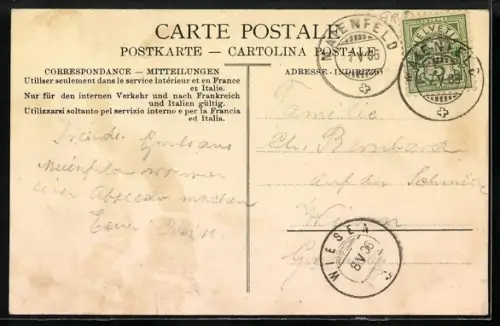 CARTE POSTALE
POSTKARTE - CARTOLINA POSTALE
CORRESPONDANCE - MITTEILUNGEN
Utiliser seulement dans le service intérieur et en France
et Italie.
Nur für den internen Verkehr und nach Frankreich
und Italien gültig.
Utilizzarsi soltanto pel servizio interno e per la Francia
ed Italia.
ADRESSE - INDIRIZZO
MAIENFELD
V 06
HELVETIA
MAIENFELD
Familie
Ch. Bernhard
auf der
Wiesen
Gruss aus
Maienfeld
einen Abstecher machen
WIESEN
8 V 06